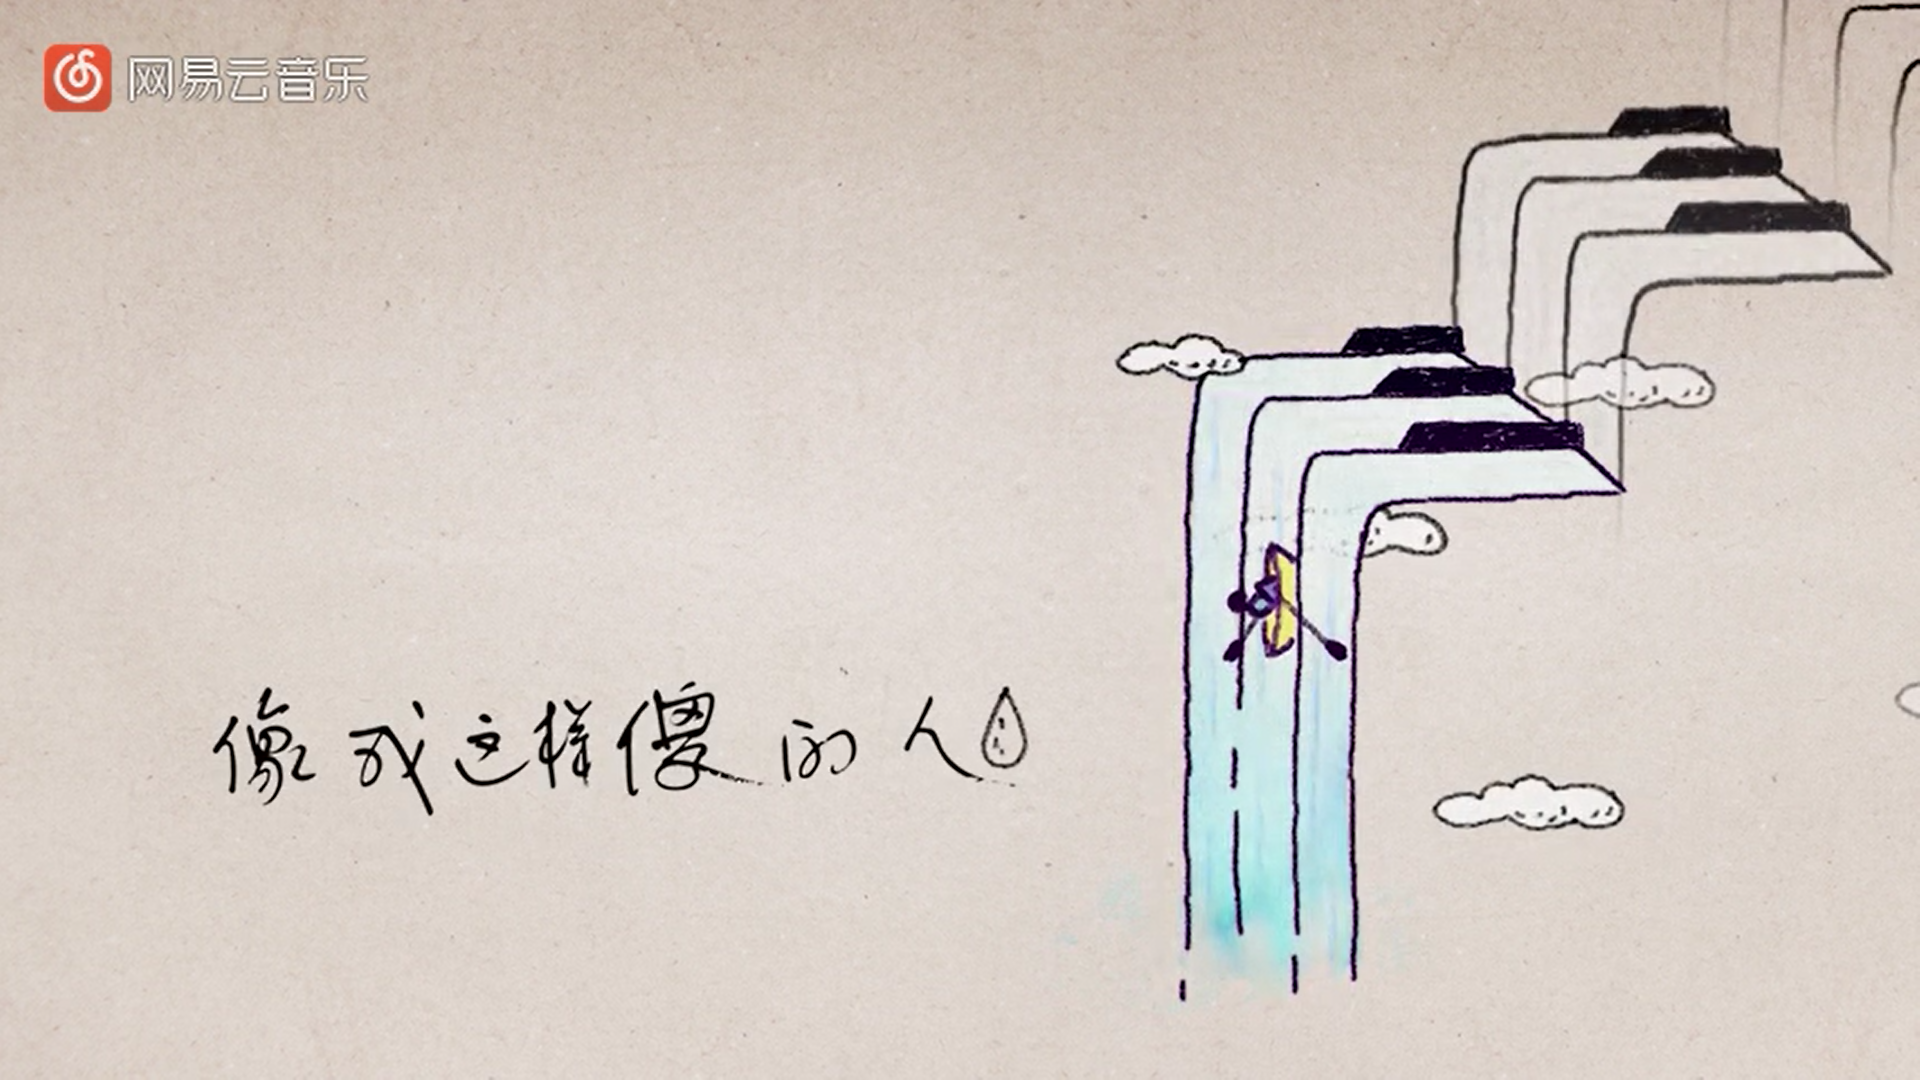 网易云音乐
像我这样傻的人